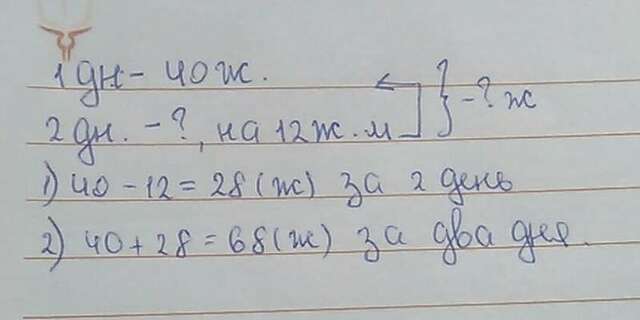 1 дн - 40 ж.
2 дн. - ?, на 12 ж. м } - ? ж
1) 40 - 12 = 28 (ж) за 2 день
2) 40 + 28 = 68 (ж) за два дня.